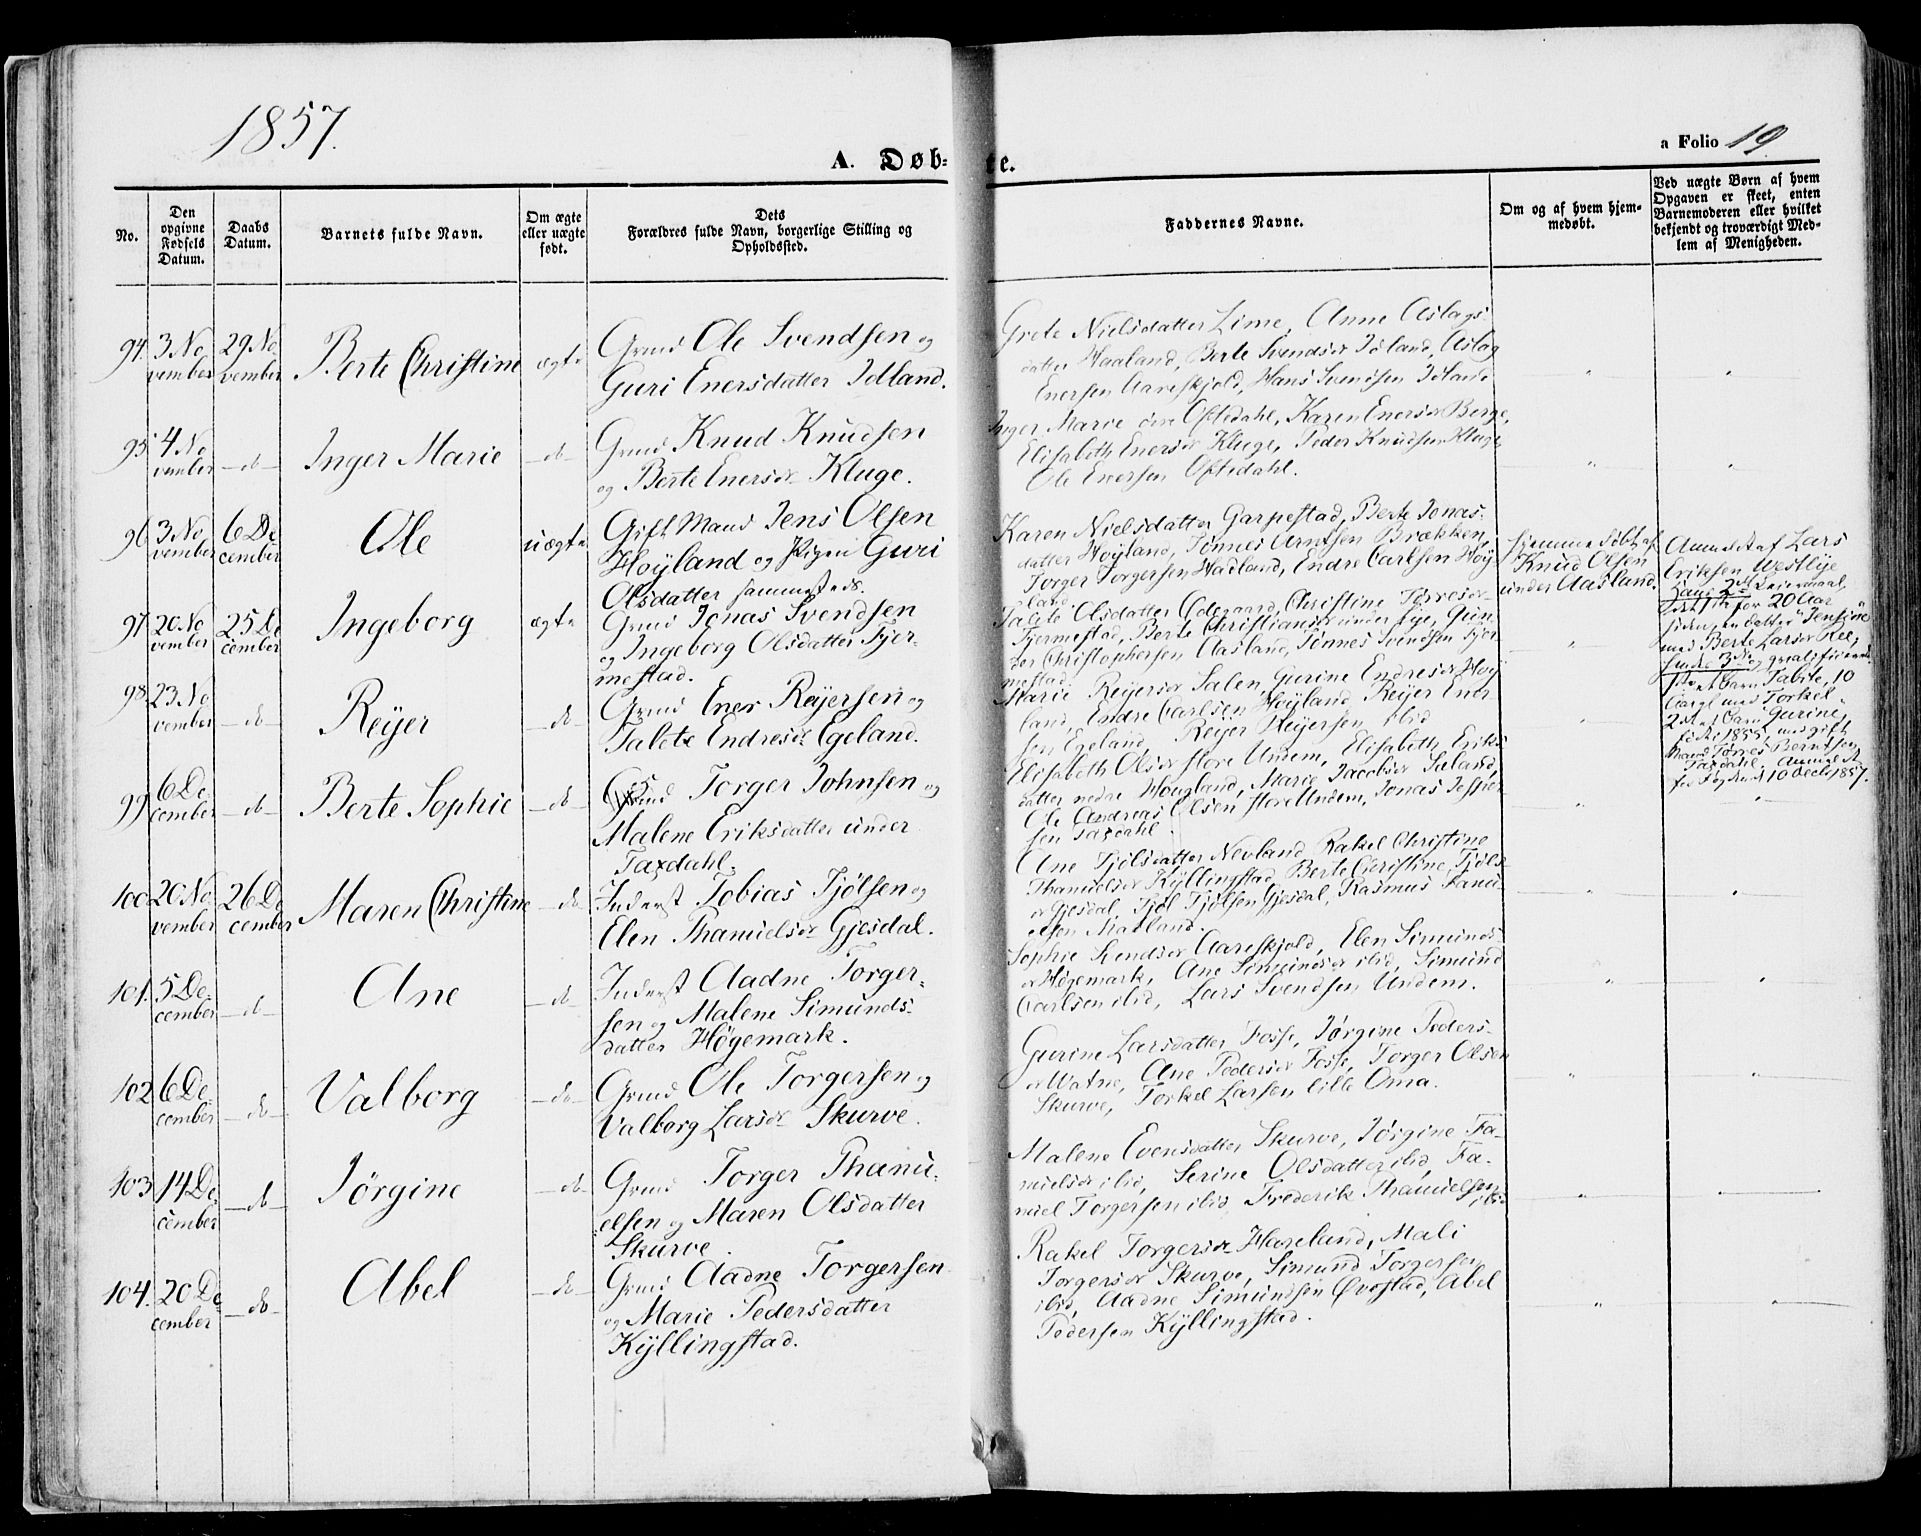 1857.
A. Døb-
te.
a Folio 19.
No.
Den opgivne Fødsels Datum.
Daabs Datum.
Barnets fulde Navn.
Om ægte eller uægte født.
Dets Forældres fulde Navn, borgerlige Stilling og Opholdssted.
Faddernes Navne.
Om og af hvem hjem-
medøbt.
Ved uægte Børn af hvem
Opgaven er skeet, enten
Barnemoderen eller hvilket
bekjendt og troværdigt Med-
lem af Menigheden.
94. 3 No
vember
29 No
vember
Berte Christine
ægte
Grmd Ole Svendsen og
Guri Enersdatter Idland.
Grete Nielsdatter Lime, Anne Aslags-
datter Haaland, Berte Svendsdr Idland, Aslag
Enersen Aareskjold, Hans Svendsen Idland
95 4 No
vember
do
Inger Marie
do
Grmd Knud Knudsen
og Berte Enersdr Kluge.
Inger Marie øvre Oftedahl, Karen Enersdr Berge,
Elisabeth Enersdr Kluge, Peder Knudsen Kluge,
Ole Enersen Oftedahl.
96 3 No
vember
6 De
cember
Ole
uægte
Gift Mand Jens Olsen
Høyland og Pigen Guri
Olsdatter sammesteds.
Karen Nielsdatter Garpestad, Berte Jonas-
datter Høyland, Tønnes Arntsen Brækken,
Torger Torgersen Hadland, Endre Carlsen Høy-
land.
hjemmedøbt af
Knud Olsen
under Aasland.
Anmeldt af Lars
Eriksen Westlye
Hans 2det Leiermaal,
første for 20 Aar
siden, en datter "Jensine"
med Berte Larsdr Ree,
hendes 3die
første barn Talite, 10
med Torkel
2det barn Gurine,
født 1855, med gift
Mand Tørres Berntsen
Taxdahl. Anmeldt
for Fogden d 10 Decbr 1857.
97 20 No
vember
25 De
cember
Ingeborg
ægte
Grmd Jonas Svendsen
og Ingeborg Olsdatter Fjer-
mestad.
Talite Olsdatter Ødegaard, Christine Tørresdr
Fjermestad, Berte Christiansdr under Eje, Gun-
der Christophersen Aasland, Tønnes Svendsen Fjer-
mestad.
98. 23 No
vember
do
Reijer
do
Grmd Ener Reijersen og
Talete Endresdr Egeland.
Marie Reijersdr Salen, Gurine Endresdr Høy-
land, Endre Carlsen Høyland, Reijer Ener-
sen Egeland, Reijer Reijersen ibid
99 6 De
cember
do
Berte Sophie
do
Grmd Torger Johnsen og
Malene Eriksdatter under
Taxdahl.
Elisabeth Olsdr store Undem, Elisabeth Eriks-
datter nedre Hougland, Marie Jacobsdr Sæland,
Ole Andreas Olsen store Undem, Jonas Jesper-
sen Taxdahl.
100 20 No
vember
26 De
cember
Maren Christine
do
Inderst Tobias Tjølsen og
Elen Thamielsdr Gjesdal.
Ane Tjølsdatter Nevland, Rakel Christine
Thamielsdr Kyllingstad, Berte Christine Tjøls-
dr Gjesdal, Tjøl Tjølsen Gjesdal, Rasmus Tami-
elsen Madland.
101. 5 De-
cember
do
Ane
do
Inderst Aadne Torger-
sen og Malene Simunds-
datter Høgemark.
Sophie Svendsdr Aareskjold, Elen Simunds-
dr Høgemark, Ane Simundsdr ibid, Simund
Carlsen ibid, Lars Svendsen Undem.
102 6 De-
cember
do
Valborg
do
Grmd Ole Torgersen og
Valborg Larsdr Skurve.
Gurine Larsdatter Fosse, Jørgine Peders-
dr Watne, Ane Pedersdr Fosse, Torger Olsen
Skurve, Torkel Larsen lille Oma.
103 14 De-
cember
do
Jørgine
do
Grmd Torger Thami-
elsen og Maren Olsdatter
Skurve.
Malene Evensdatter Skurve, Jørgine Ta-
mielsdr ibid, Serine Olsdatter ibid, Ta-
miel Torgersen ibid, Frederik Thamielsen
ibid
104. 20 De
cember
do
Abel
do
Grmd Aadne Torgersen
og Marie Pedersdatter
Kyllingstad.
Rakel Torgersdr Haveland, Mali
Torgersdr Skurve, Simund Torgersen
ibid, Aadne Simundsen Øvestad, Abel
Pedersen Kyllingstad.